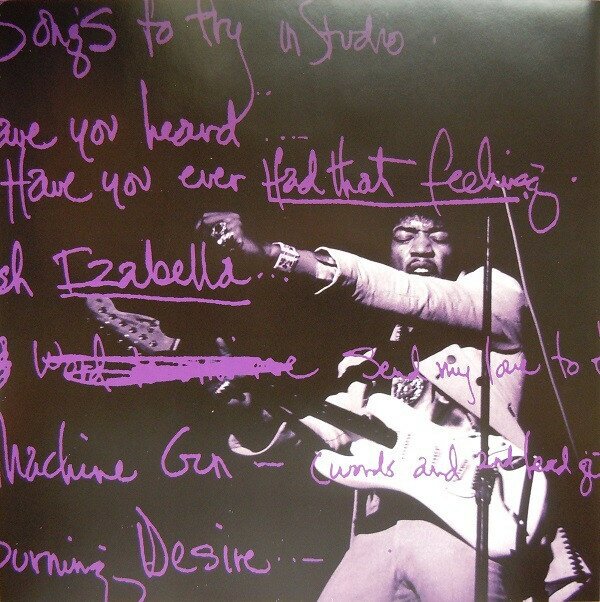 Songs to try in Studio.
ave you heard ....
Have you ever Had that feeling.
sh Izabella...
Send my love to
Machine Gun — (words and 2nd lead g
Burning Desire..—